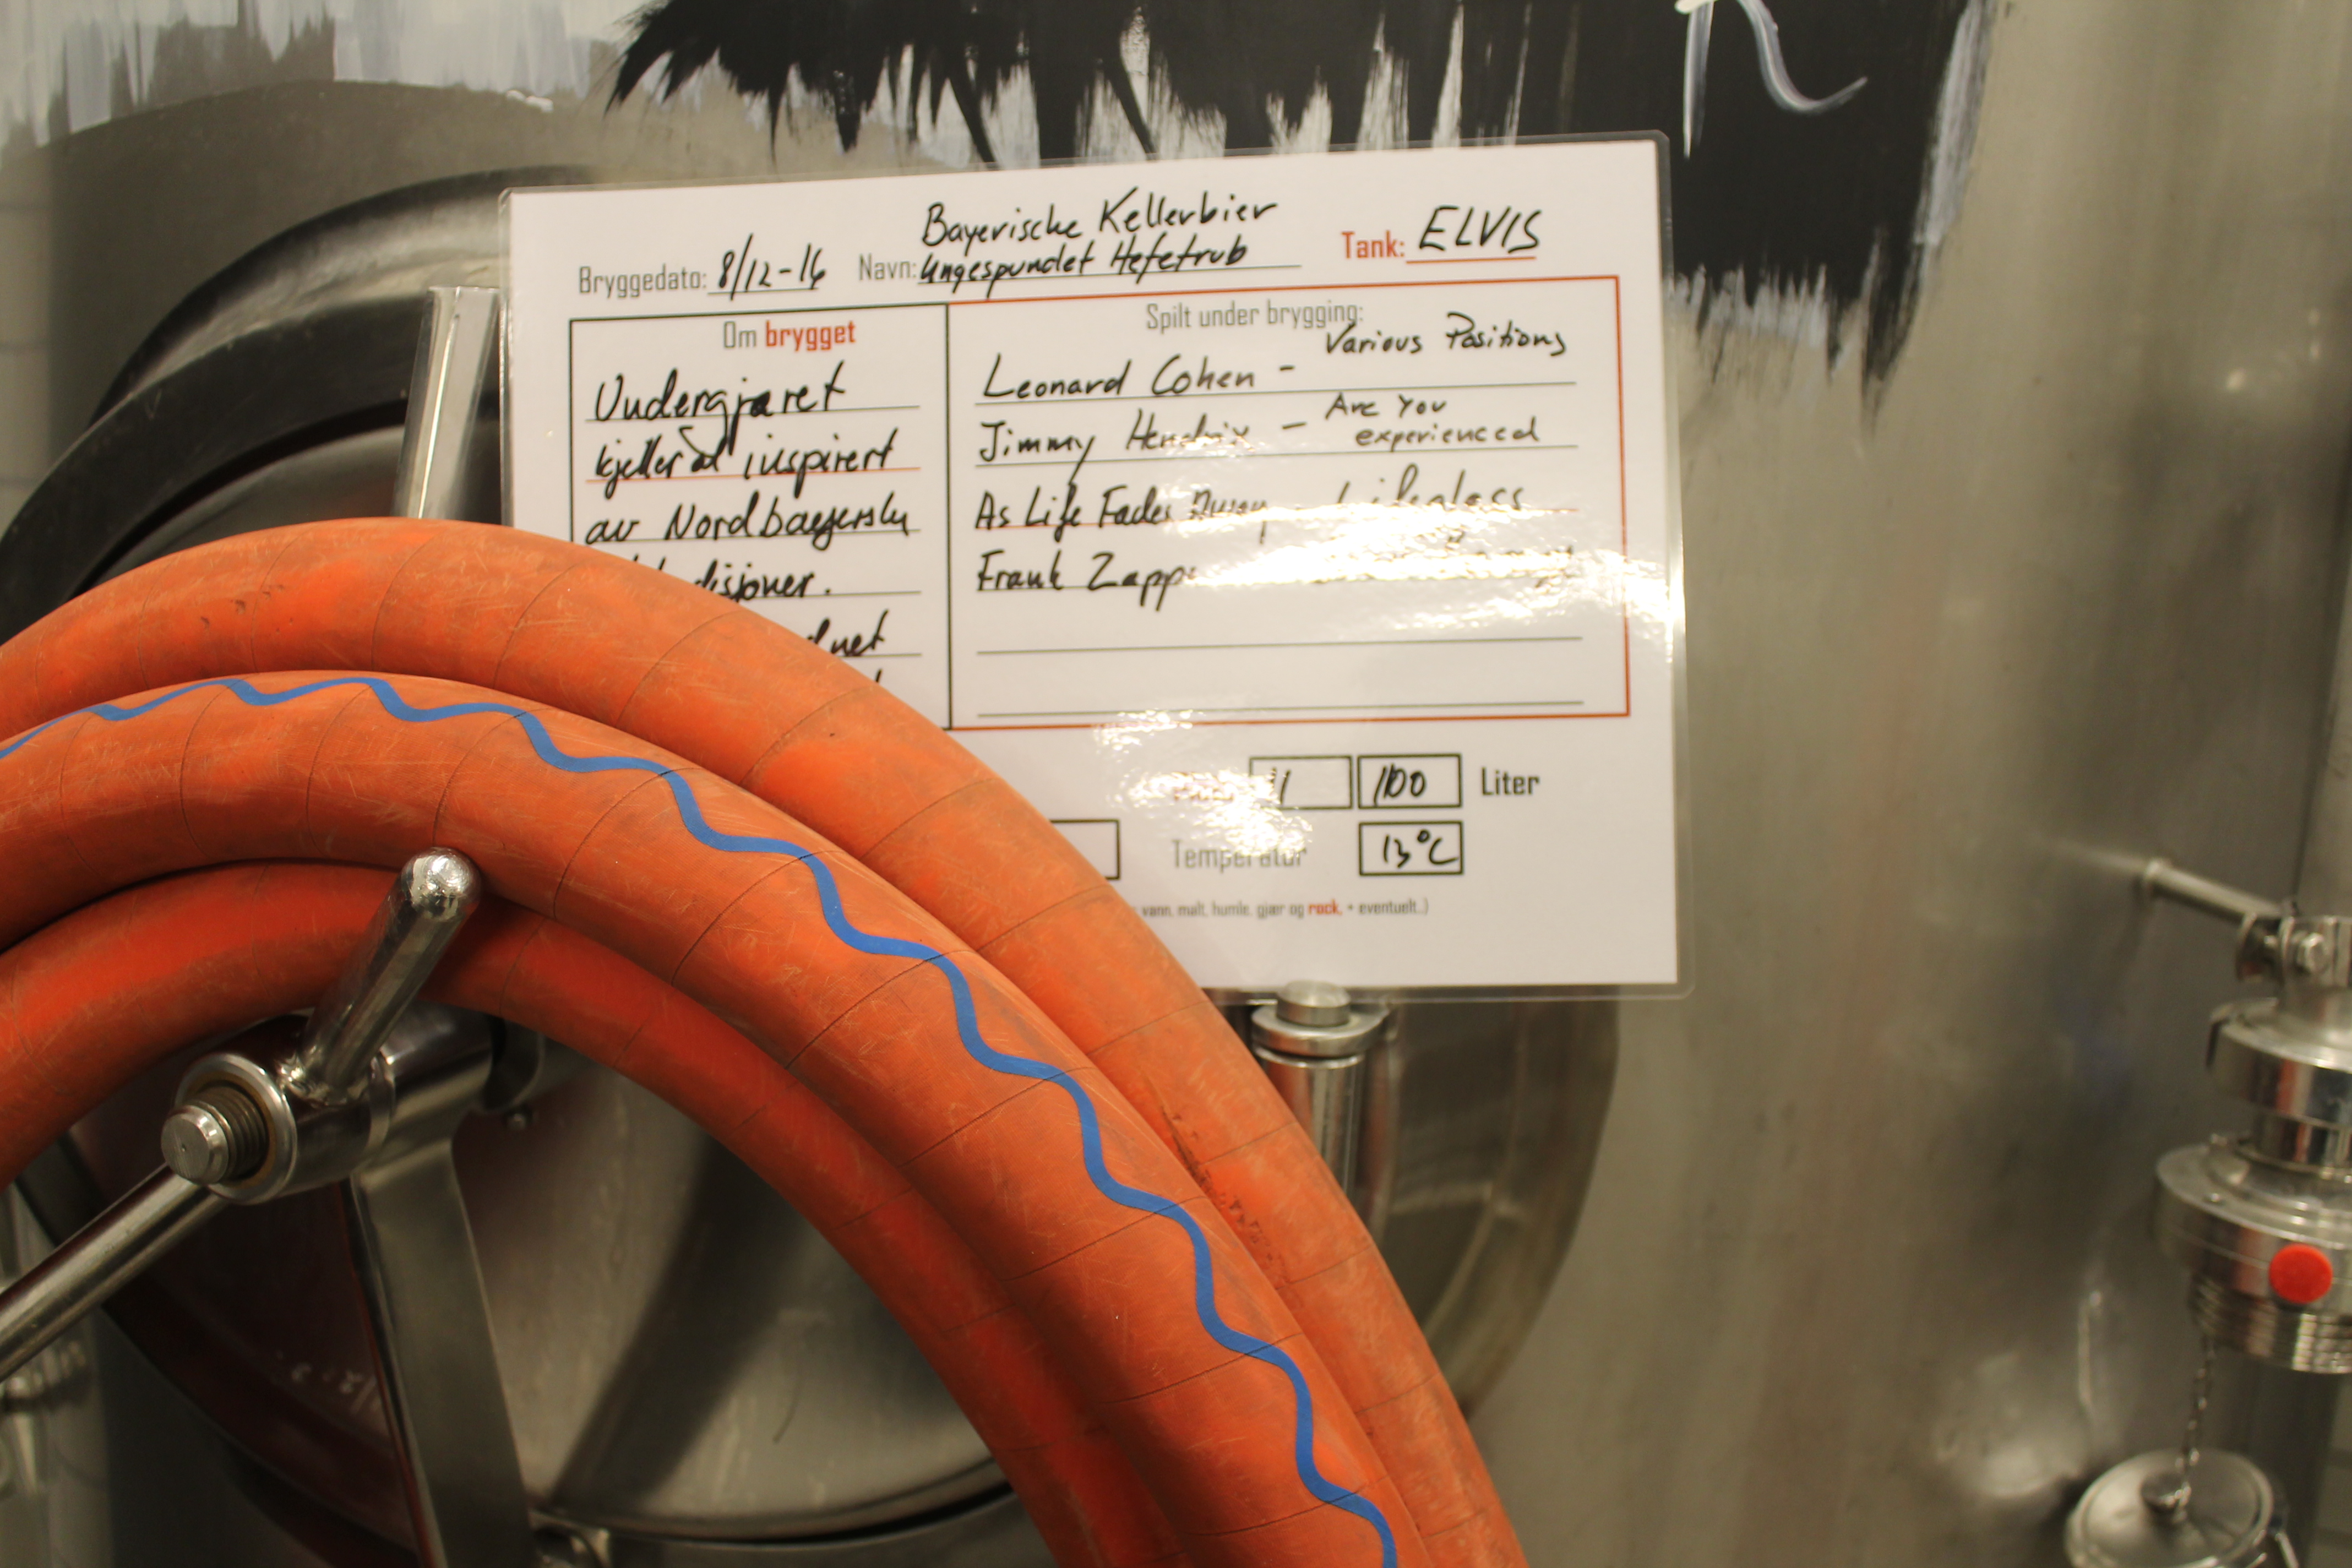 Bayerische Kellerbier
Bryggedato: 8/12-16 Navn: Ungespundet Hefetrub Tank: ELVIS
Om brygget
Undergjæret
kjellerøl inspirert
av Nordbayersk
disjoner.
Spilt under brygging:
Leonard Cohen - Various Positions
Jimmy Hendrix - Are You experienced
As Life Fades Away - Lifeless
Frank
1100 Liter
Temperatur 13°C
vann, malt, humle, gjær og rock, + eventuelt..)